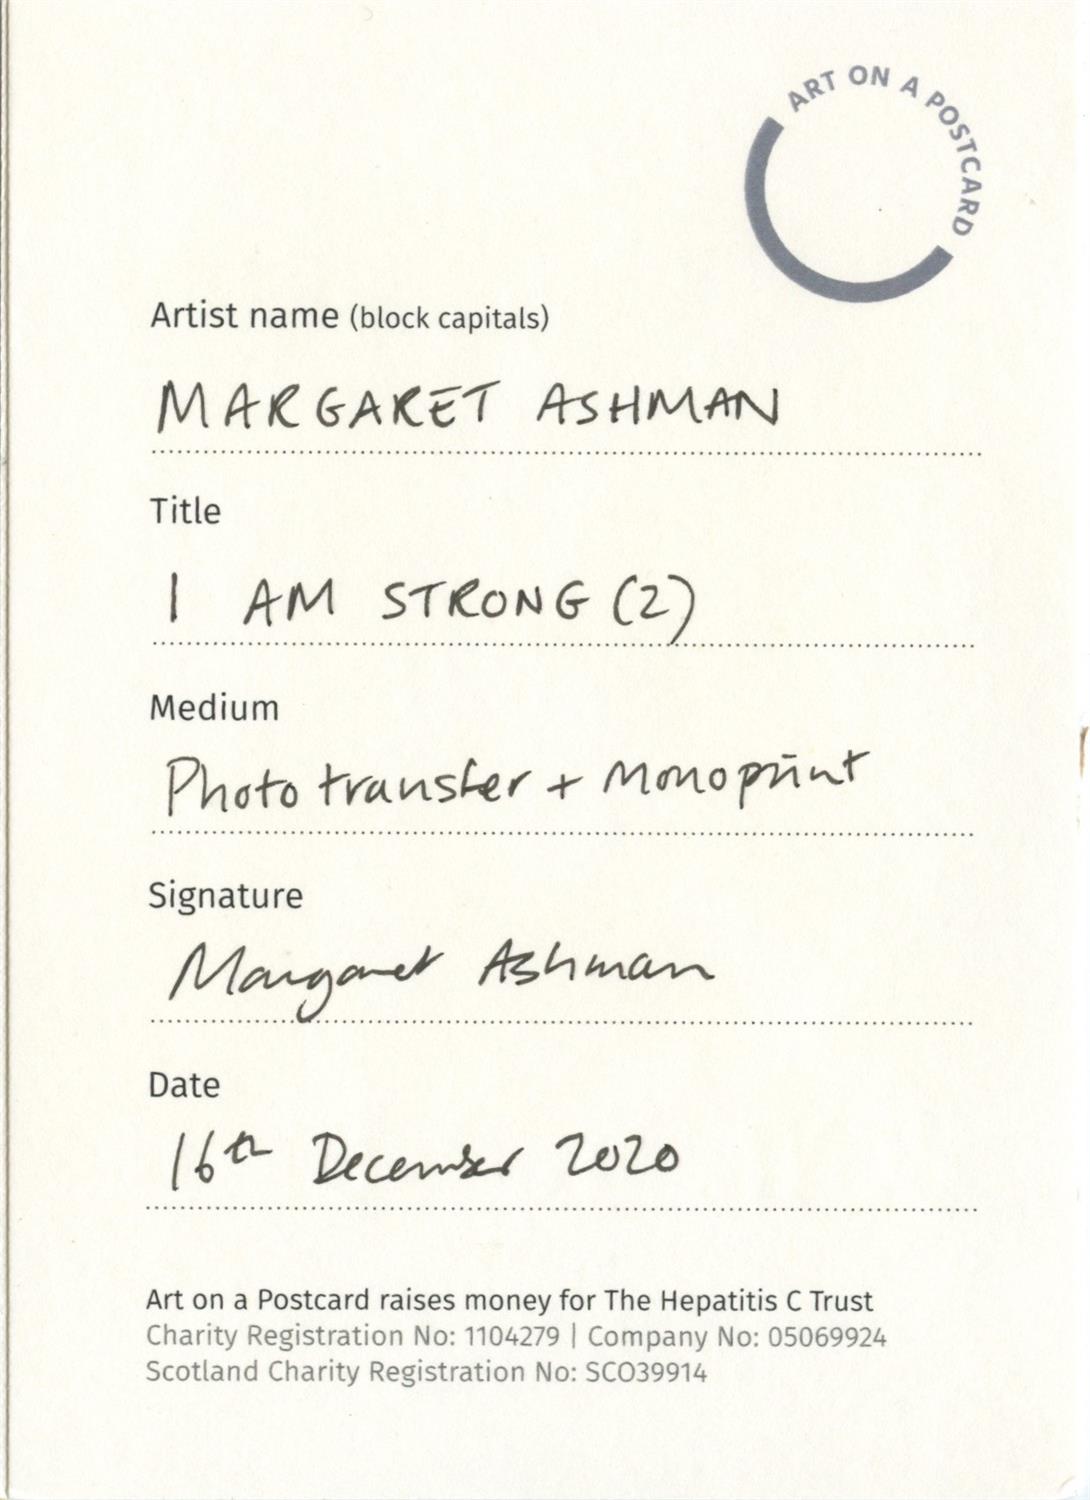 ART ON A POSTCARD
Artist name (block capitals)
MARGARET ASHMAN
Title
I AM STRONG (2)
Medium
Photo transfer + Monoprint
Signature
Margaret Ashman
Date
16th December 2020
Art on a Postcard raises money for The Hepatitis C Trust
Charity Registration No: 1104279 | Company No: 05069924
Scotland Charity Registration No: SCO39914